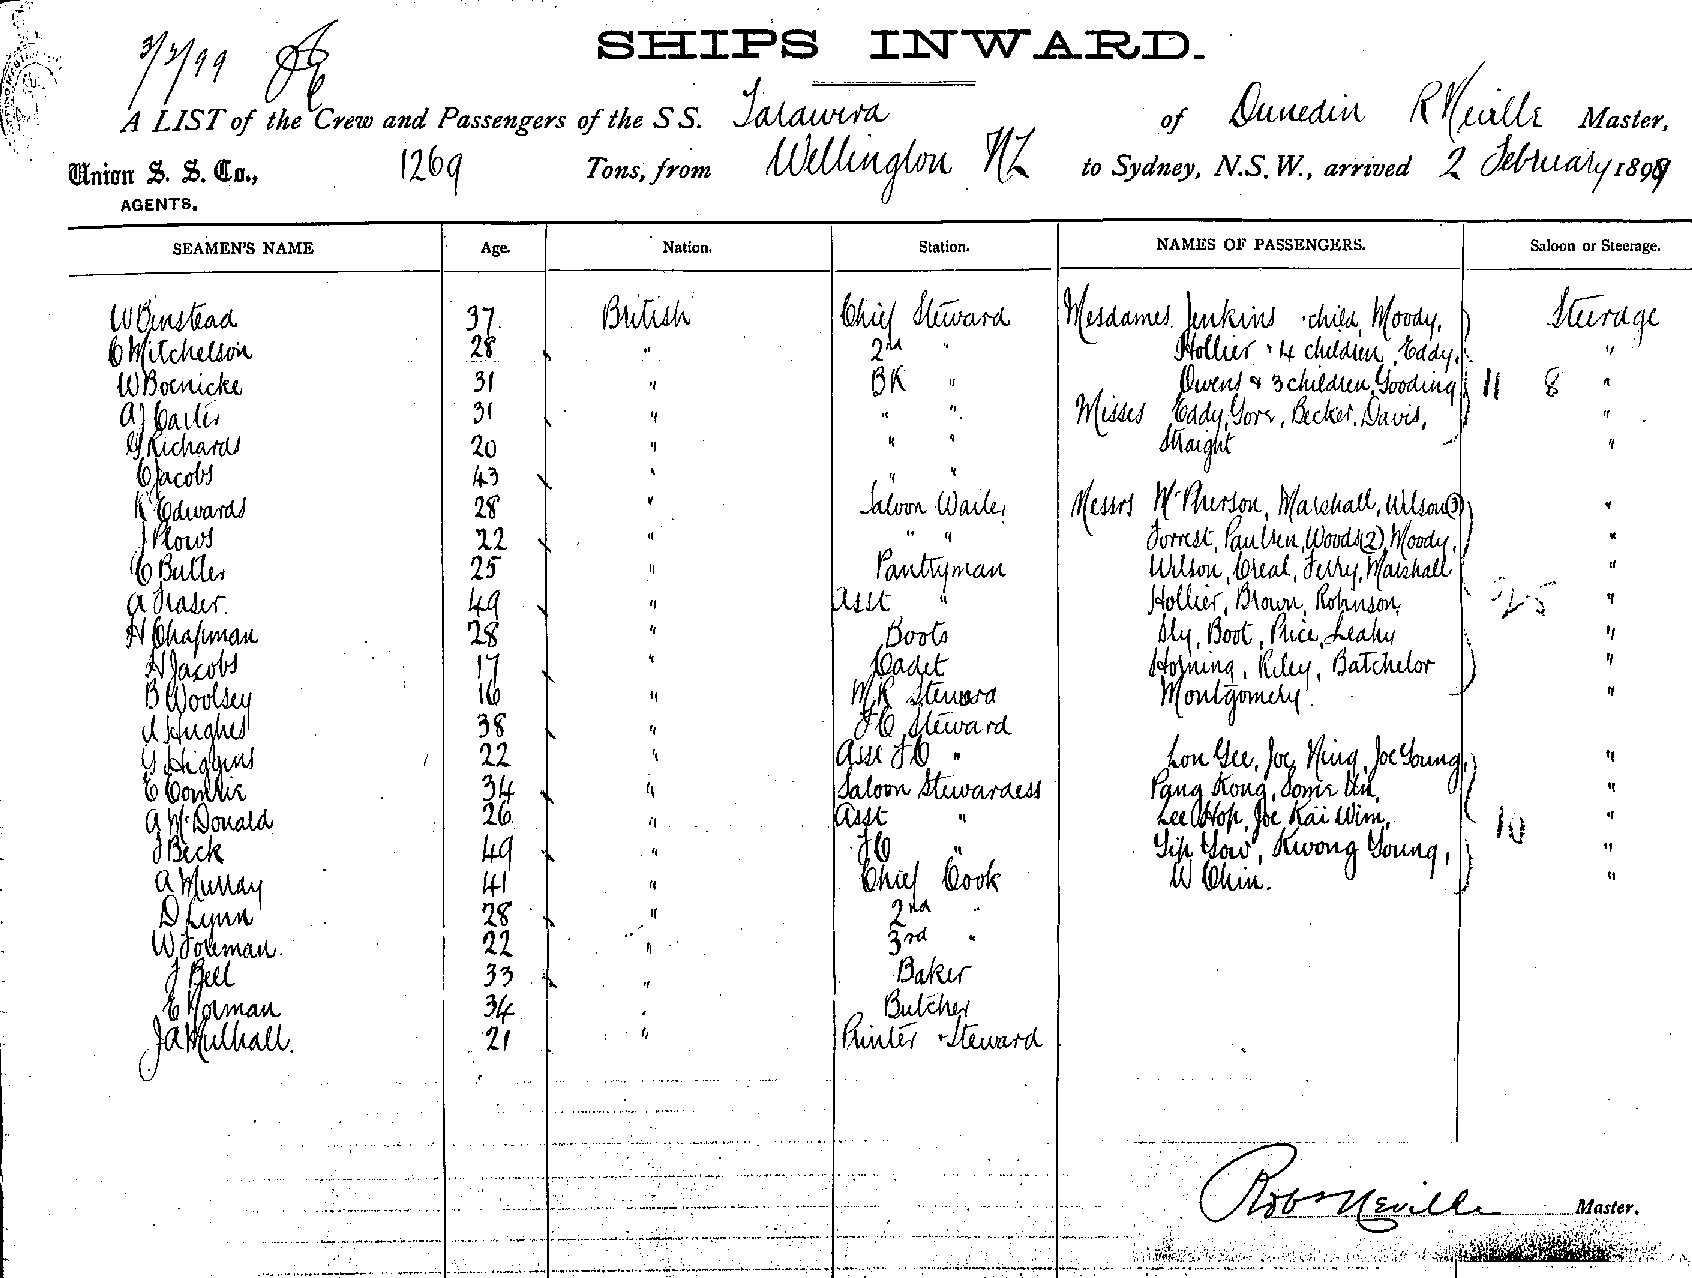 3/2/99
SHIPS INWARD.
A LIST of the Crew and Passengers of the S S. Tarawera of Dunedin R Neville Master,
Union S. S. Co., 1269 Tons, from Wellington NZ to Sydney, N.S.W., arrived 2 February 1899
AGENTS.
SEAMEN'S NAME Age. Nation. Station. NAMES OF PASSENGERS. Saloon or Steerage.
W Binstead 37 British Chief Steward Mesdames Jenkins & child, Moody, Steerage
C Mitchelson 28 " 2nd " Hollier & 4 children, Eddy, "
W Boenicke 31 " BK " Owens & 3 children, Gooding 11 8 "
A J Carter 31 " " " Misses Eddy, Gore, Becker, Davis, "
G Richards 20 " " " Straight "
C Jacobs 43 " " "
R Edwards 28 " Saloon Waiter Messrs McPherson, Marshall, Wilson "
J Plows 22 " " " Forrest, Paulsen, Woods (2), Moody, "
C Butler 25 " Pantryman Wilson, Creal, Terry, Marshall "
A Fraser. 49 " Asst " Hollier, Brown, Robinson, 25 "
H Chapman 28 " Boots Sly, Boot, Price, Leahy "
H Jacobs 17 " Cadet Horning, Riley, Batchelor "
B Woolsey 16 " M.R. Steward Montgomery. "
Hughes 38 " F C Steward
G Higgins 22 " Asst F C " Lon Gee, Joe Ning, Joe Young, "
E 34 " Saloon Stewardess Pang Kong, Some Un, "
A McDonald 26 " Asst " Lee Hop, Joe Kai Wim, 10 "
J Beck 49 " F C " Yip Gow, Kwong Young, "
A Murray 41 " Chief Cook W Chin. "
D Lynn 28 " 2nd "
W Foreman. 22 " 3rd "
J Bell 33 " Baker
E Norman 34 " Butcher
J A Mulhall. 21 " Printer & Steward
Robt Neville Master.